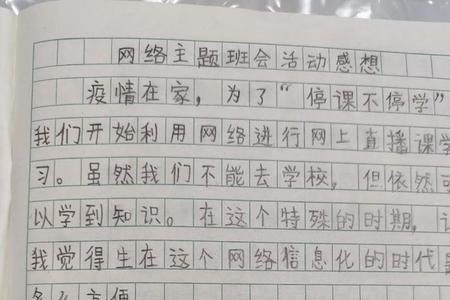 网络主题班会活动感想
疫情在家，为了“停课不停学”
我们开始利用网络进行网上直播课学
习。虽然我们不能去学校，但依然可
以学到知识。在这个特殊的时期，让
我觉得生在这个网络信息化的时代是
多么方便